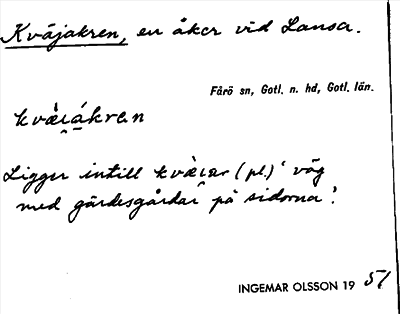 Kväjakren, en åker vid Lansa.
Fårö sn, Gotl. n. hd, Gotl. län.
kvæ̀ıákren
Ligger intill kvæ̀ıar (pl.) ‘väg
med gärdesgårdar på sidorna’.
INGEMAR OLSSON 19 51